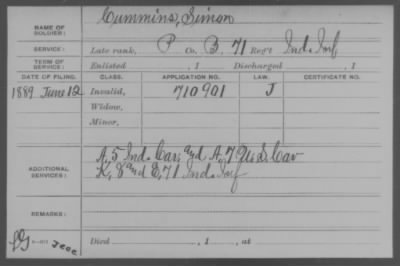 NAME OF SOLDIER: Cummins, Simon
SERVICE: Late rank, P Co. B, 71 Reg't Ind. Inf
TERM OF SERVICE: Enlisted , 1 Discharged , 1
DATE OF FILING. CLASS. APPLICATION NO. LAW. CERTIFICATE NO.
1889 June 12 Invalid, 710901 J
Widow,
Minor,
ADDITIONAL SERVICES: A, 5 Ind. Cav, and A, 79 U.S. Cav
K, 8 and E, 71 Ind. Inf
REMARKS:
Died , 1 , at